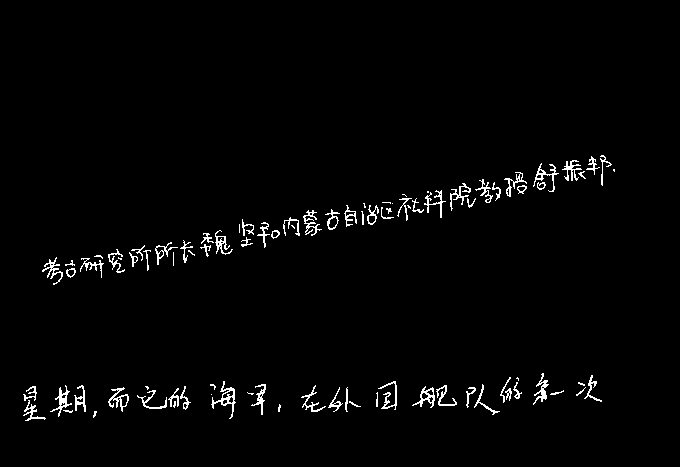 考古研究所所长魏坚和内蒙古自治区社科院教授舒振邦.
星期,而它的海军,在外国舰队的多次